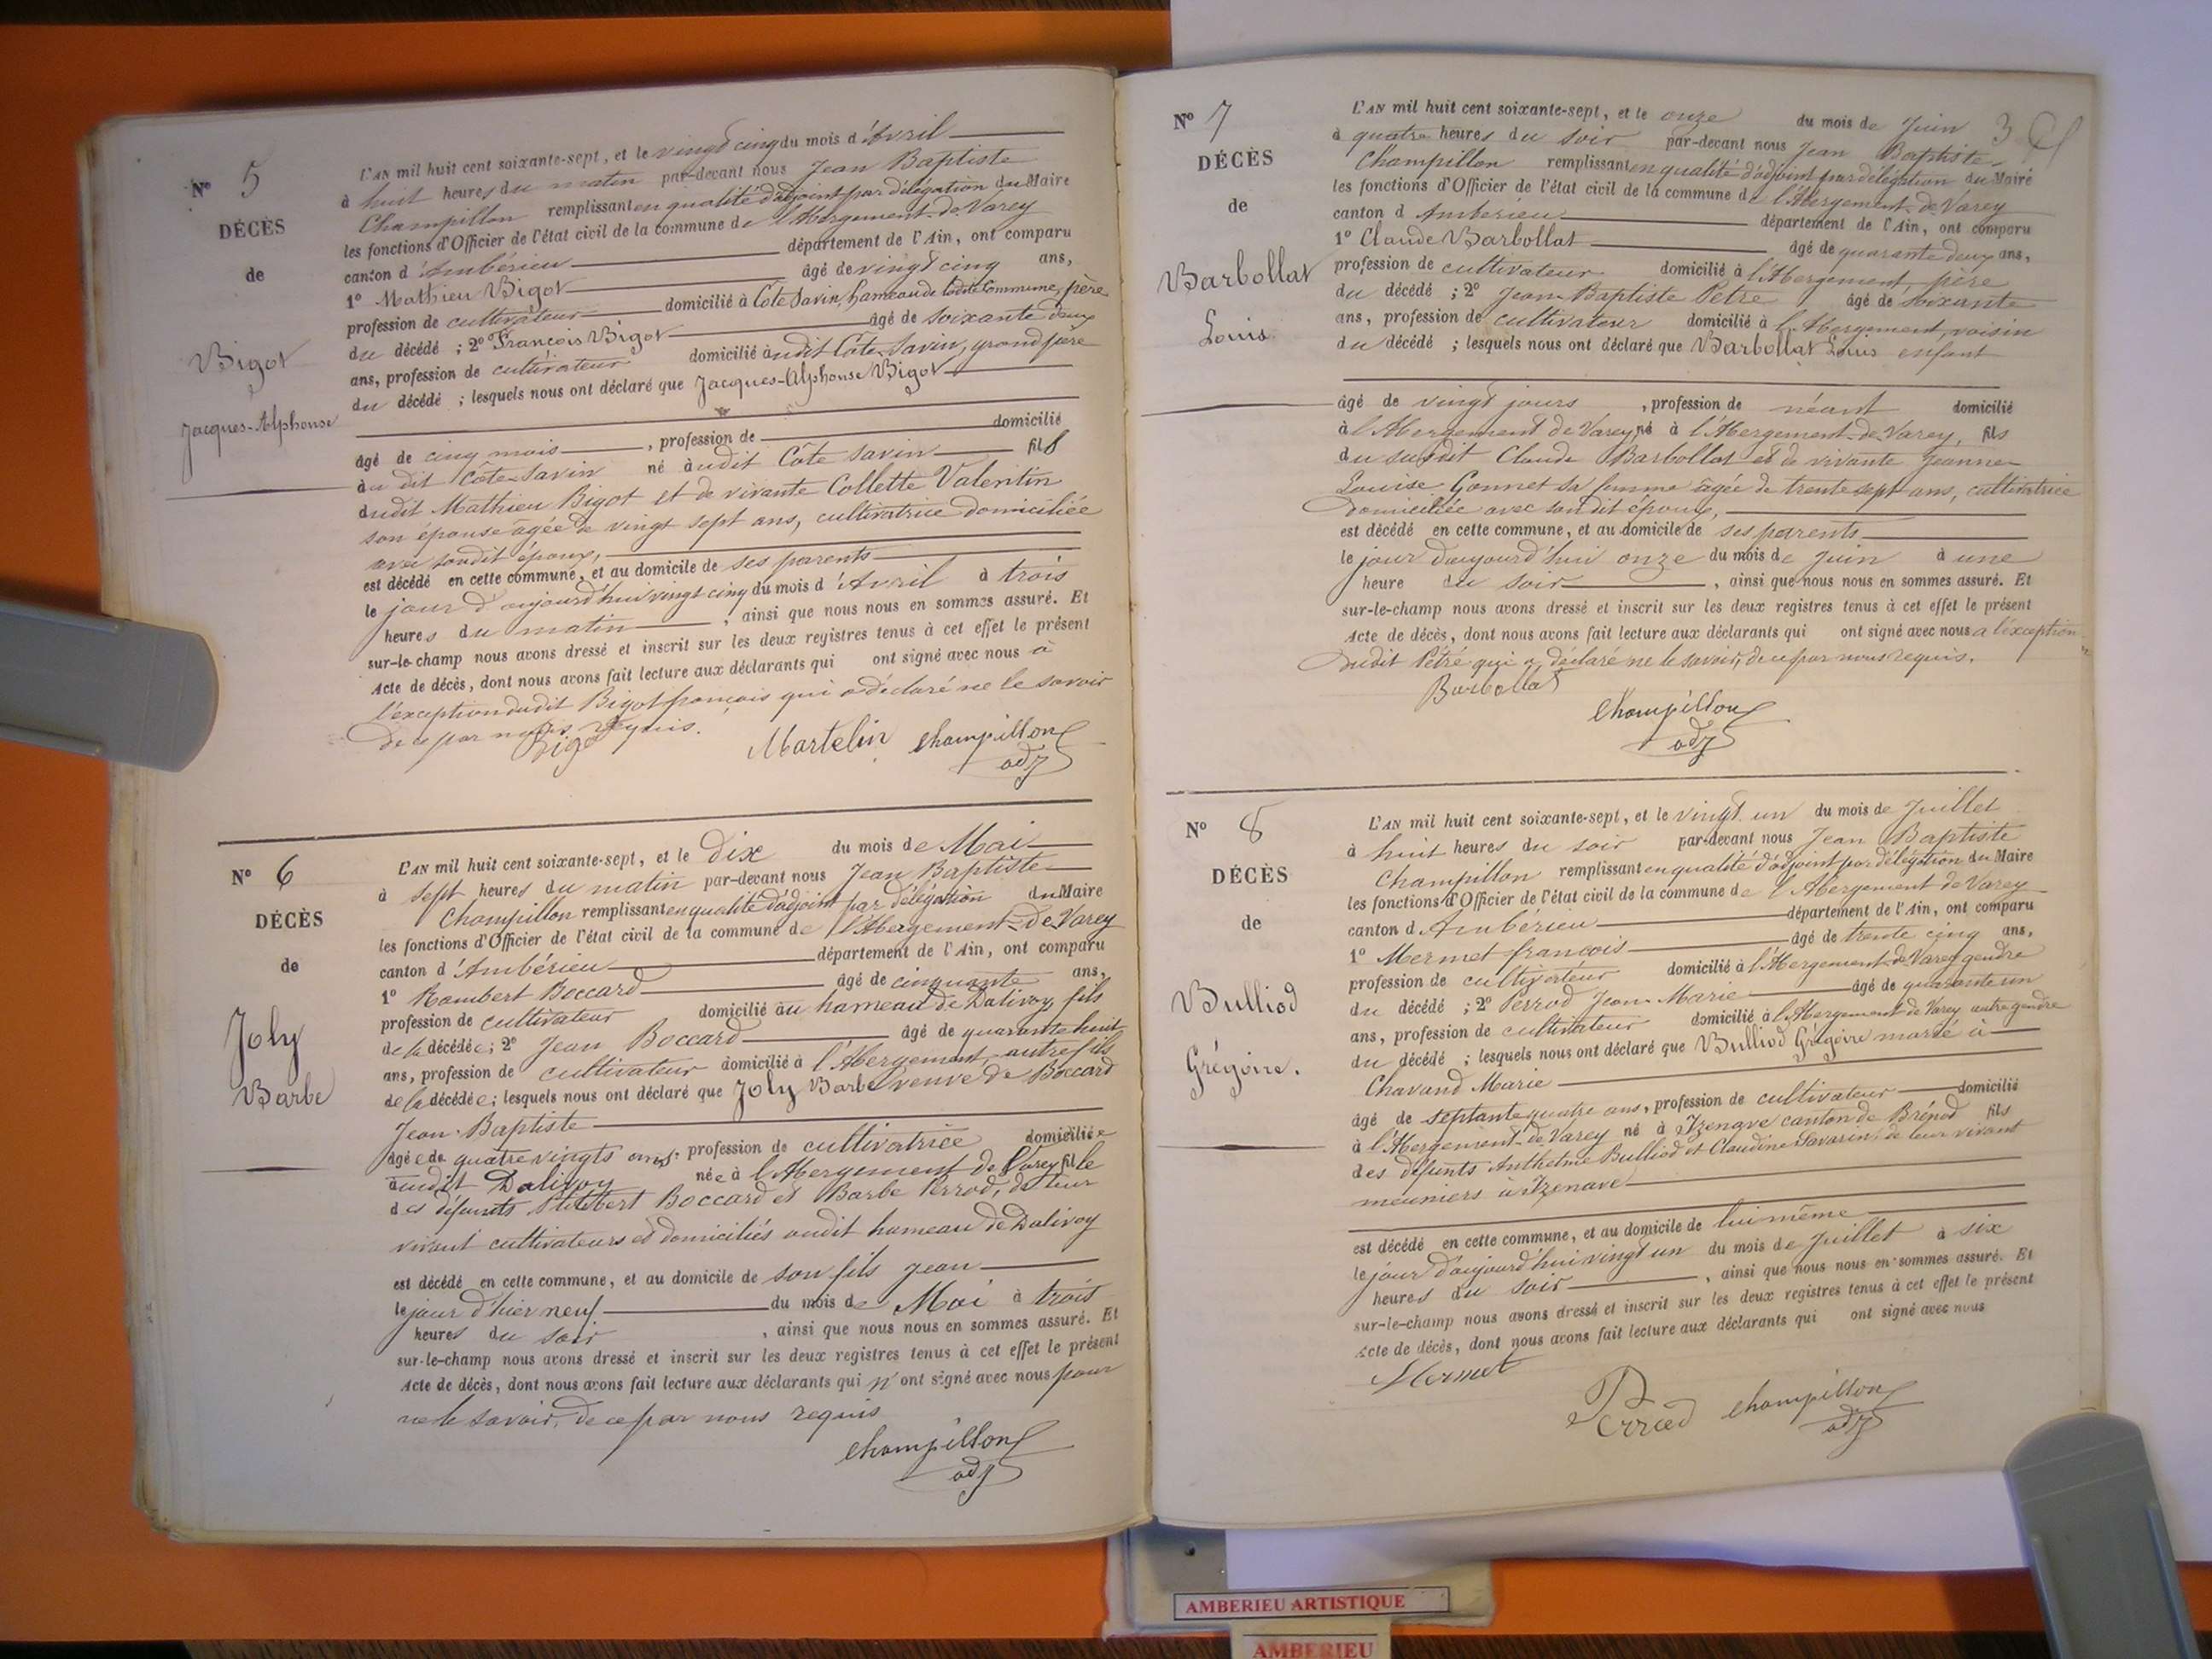 Nº 5
DÉCÈS
de
Bigot
Jacques-Alphonse
L'AN mil huit cent soixante-sept, et le vingt cinq du mois d'Avril
à huit heures du matin par-devant nous Jean Baptiste
Champillon remplissant en qualité d'adjoint par délégation du Maire
les fonctions d'Officier de l'état civil de la commune de l'Abergement-de-Varey
canton d'Ambérieu département de l'Ain, ont comparu
1º Mathieu Bigot âgé de vingt cinq ans,
profession de cultivateur domicilié à Côte Savin, hameau de cette Commune, père
du décédé ; 2º François Bigot âgé de soixante deux
ans, profession de cultivateur domicilié audit Côte-Savin, grand père
du décédé ; lesquels nous ont déclaré que Jacques-Alphonse Bigot
âgé de cinq mois, profession de domicilié
au dit Côte-Savin né audit Côte Savin fils
dudit Mathieu Bigot et de vivante Collette Valentin
son épouse âgée de vingt sept ans, cultivatrice domiciliée
avec sondit époux,
est décédé en cette commune, et au domicile de ses parents
le jour d'aujourd'hui vingt cinq du mois d'Avril à trois
heures du matin, ainsi que nous nous en sommes assuré. Et
sur-le-champ nous avons dressé et inscrit sur les deux registres tenus à cet effet le présent
Acte de décès, dont nous avons fait lecture aux déclarants qui ont signé avec nous à
l'exception dudit Bigot françois qui a déclaré ne le savoir
de ce par nous requis.
Bigot Martelin Champillon
adj
Nº 6
DÉCÈS
de
Joly
Barbe
L'AN mil huit cent soixante-sept, et le dix du mois de Mai
à sept heures du matin par-devant nous Jean Baptiste
Champillon remplissant en qualité d'adjoint par délégation du Maire
les fonctions d'Officier de l'état civil de la commune de l'Abergement-de-Varey
canton d'Ambérieu département de l'Ain, ont comparu
1º Rambert Boccard âgé de cinquante ans,
profession de cultivateur domicilié au hameau de Dalivoy fils
de la décédée ; 2º Jean Boccard âgé de quarante huit
ans, profession de cultivateur domicilié à l'Abergement, autre fils
de la décédée ; lesquels nous ont déclaré que Joly Barbe veuve de Boccard
Jean-Baptiste
âgée de quatre vingts ans, profession de cultivatrice domiciliée
audit Dalivoy née à l'Abergement de Varey fille
des défunts Boccard et Barbe Perrod, de leur
vivant cultivateurs et domiciliés audit hameau de Dalivoy
est décédé en cette commune, et au domicile de son fils Jean
le jour d'hier neuf du mois de Mai à trois
heures du soir, ainsi que nous nous en sommes assuré. Et
sur-le-champ nous avons dressé et inscrit sur les deux registres tenus à cet effet le présent
Acte de décès, dont nous avons fait lecture aux déclarants qui n'ont signé avec nous pour
ne le savoir, de ce par nous requis
Champillon
adj
Nº 7
DÉCÈS
de
Barbollat
Louis
L'AN mil huit cent soixante-sept, et le onze du mois de Juin 3
à quatre heures du soir par-devant nous Jean Baptiste
Champillon remplissant en qualité d'adjoint par délégation du Maire
les fonctions d'Officier de l'état civil de la commune de l'Abergement-de-Varey
canton d'Ambérieu département de l'Ain, ont comparu
1º Claude Barbollat âgé de quarante deux ans,
profession de cultivateur domicilié à l'Abergement, père
du décédé ; 2º Jean-Baptiste Petre âgé de soixante
ans, profession de cultivateur domicilié à l'Abergement, voisin
du décédé ; lesquels nous ont déclaré que Barbollat Louis enfant
âgé de vingt jours, profession de néant domicilié
à l'Abergement de Varey né à l'Abergement-de-Varey, fils
du susdit Claude Barbollat et de vivante Jeanne
Louise Gonnet sa femme âgée de trente sept ans, cultivatrice
domiciliée avec son dit époux,
est décédé en cette commune, et au domicile de ses parents
le jour d'aujourd'hui onze du mois de Juin à une
heure du soir, ainsi que nous nous en sommes assuré. Et
sur-le-champ nous avons dressé et inscrit sur les deux registres tenus à cet effet le présent
Acte de décès, dont nous avons fait lecture aux déclarants qui ont signé avec nous à l'exception
dudit Pétré qui a déclaré ne le savoir, de ce par nous requis.
Barbollat
Champillon
adj
Nº 8
DÉCÈS
de
Bulliod
Grégoire.
L'AN mil huit cent soixante-sept, et le vingt un du mois de Juillet
à huit heures du soir par-devant nous Jean Baptiste
Champillon remplissant en qualité d'adjoint par délégation du Maire
les fonctions d'Officier de l'état civil de la commune de l'Abergement de Varey
canton d'Ambérieu département de l'Ain, ont comparu
1º Mermet françois âgé de trente cinq ans,
profession de cultivateur domicilié à l'Abergement-de-Varey gendre
du décédé ; 2º Perrod Jean-Marie âgé de quarante un
ans, profession de cultivateur domicilié à l'Abergement de Varey autre gendre
du décédé ; lesquels nous ont déclaré que Bulliod Grégoire marié à
Chavand Marie
âgé de septante quatre ans, profession de cultivateur domicilié
à l'Abergement-de-Varey né à Izenave canton de Brénod fils
des défunts Anthelme Bulliod et Claudine Savarin, de leur vivant
meuniers à Izenave
est décédé en cette commune, et au domicile de lui même
le jour d'aujourd'hui vingt un du mois de Juillet à six
heures du soir, ainsi que nous nous en sommes assuré. Et
sur-le-champ nous avons dressé et inscrit sur les deux registres tenus à cet effet le présent
Acte de décès, dont nous avons fait lecture aux déclarants qui ont signé avec nous
Mermet
Perrod Champillon
adj
AMBERIEU ARTISTIQUE
AMBERIEU